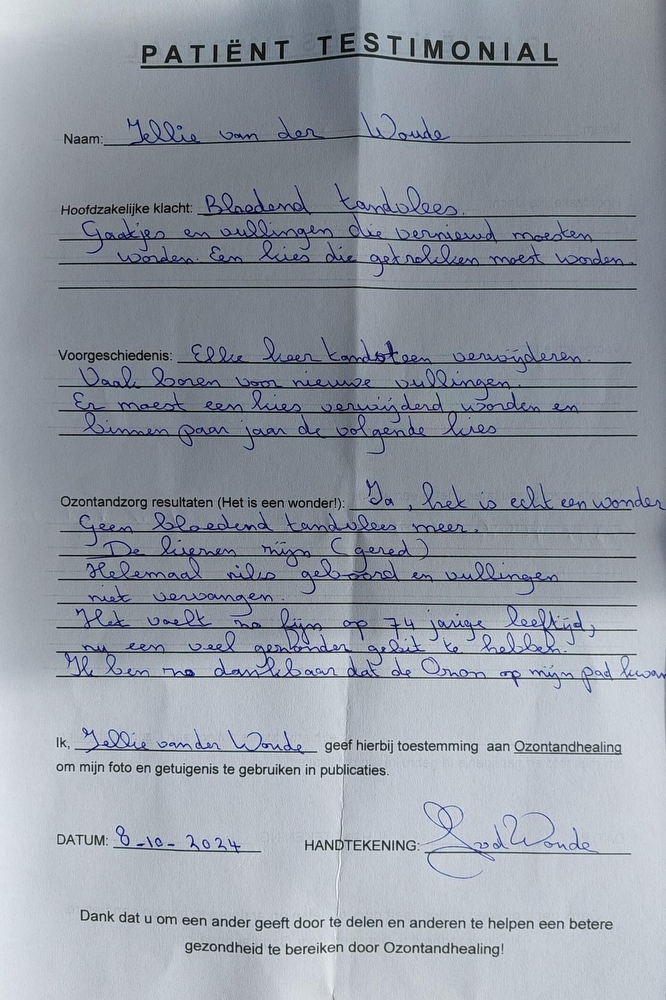 PATIËNT TESTIMONIAL
Naam: Jellie van der Woude
Hoofdzakelijke klacht: Bloedend tandvlees.
Gaatjes en vullingen die vernieuwd moesten
worden. Een kies die getrokken moest worden.
Voorgeschiedenis: Elke keer tandsteen verwijderen.
Vaak boren voor nieuwe vullingen.
Er moest een kies verwijderd worden en
binnen paar jaar de volgende kies
Ozontandzorg resultaten (Het is een wonder!): Ja, het is echt een wonder
Geen bloedend tandvlees meer.
De kiezen zijn (gered)
Helemaal niks geboord en vullingen
niet vervangen.
Het voelt zo fijn op 74 jarige leeftijd,
nu een veel gezonder gebit te hebben.
Ik ben zo dankbaar dat de Ozon op mijn pad kwam
Ik, Jellie van der Woude geef hierbij toestemming aan Ozontandhealing
om mijn foto en getuigenis te gebruiken in publicaties.
DATUM: 8-10-2024 HANDTEKENING: JvdWoude
Dank dat u om een ander geeft door te delen en anderen te helpen een betere
gezondheid te bereiken door Ozontandhealing!